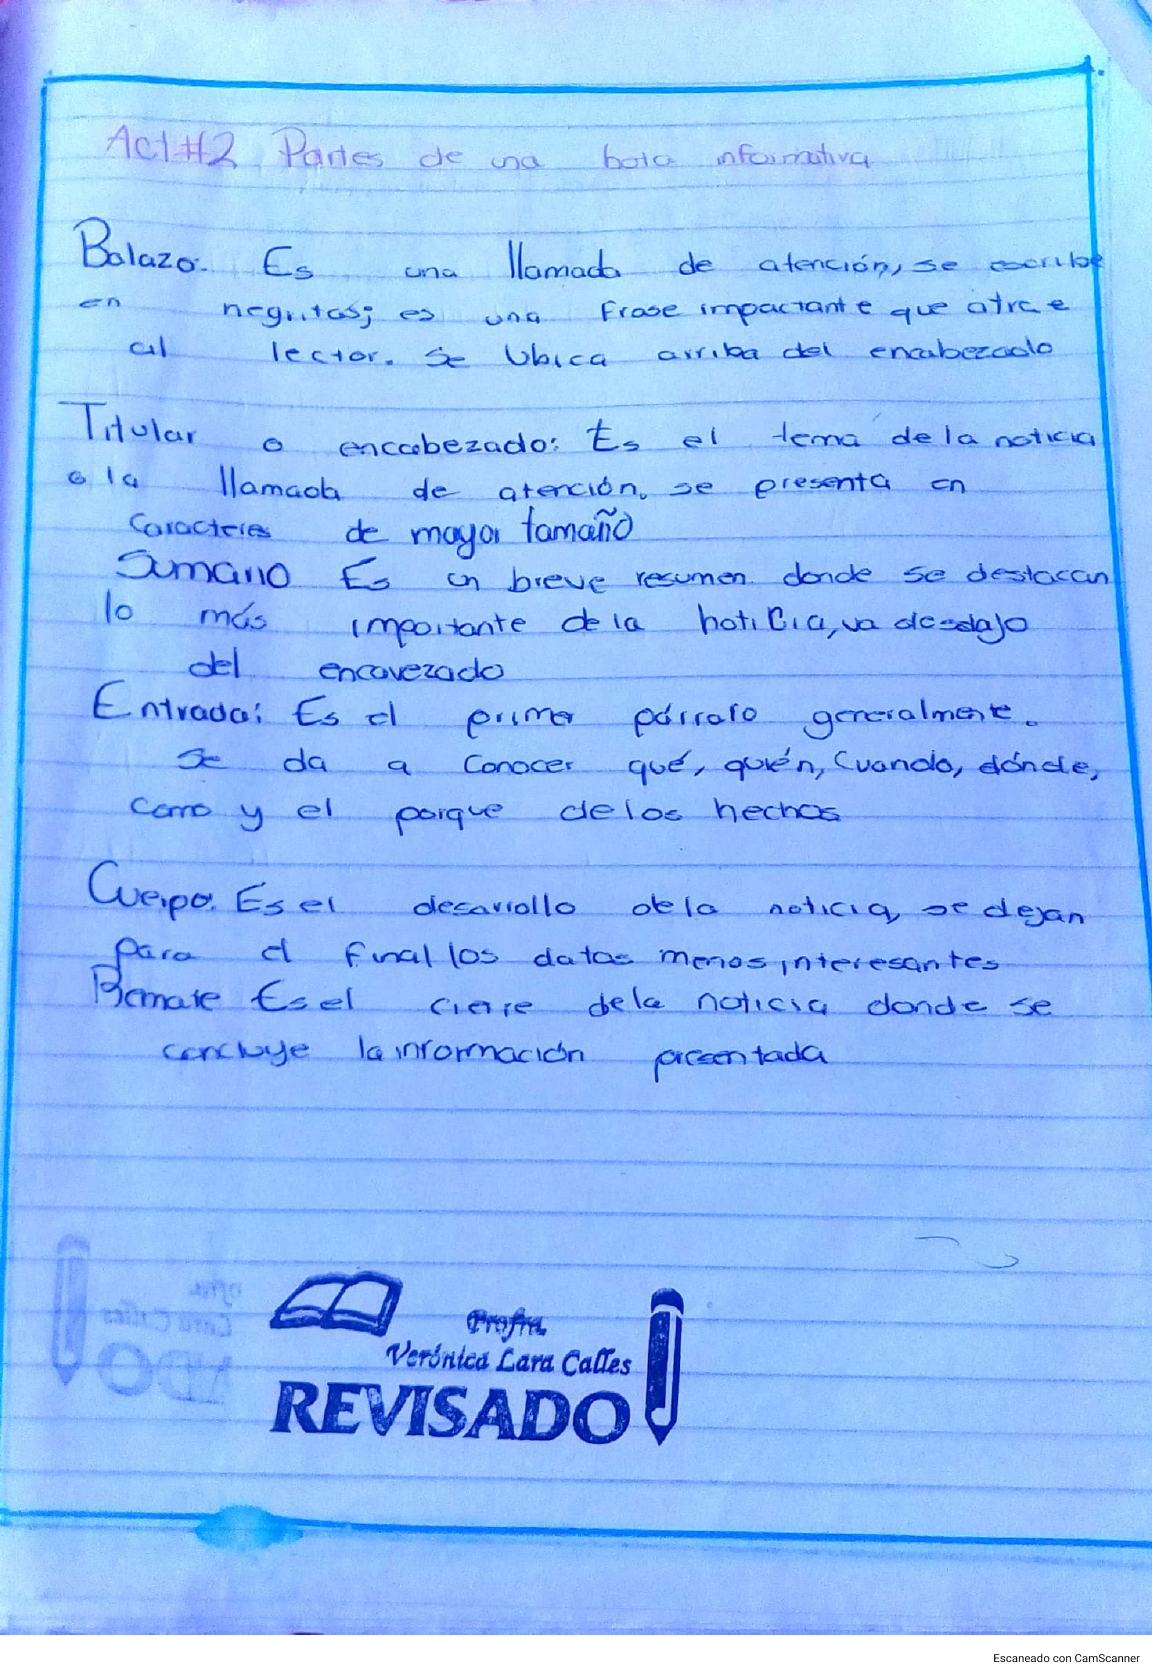 Act#2 Partes de una bota informativa
Balazo. Es una llamada de atención, se escribe
en negritas; es una frase impactante que atrae
al lector. Se Ubica arriba del encabezado
Titular o encabezado: Es el tema de la noticia
o la llamada de atención. se presenta en
Caracteres de mayor tamaño
Sumario Es un breve resumen donde se destacan
lo más importante de la noticia, va desdajo
del encavezado
Entrada: Es el primer párrafo generalmente.
Se da a Conocer qué, quién, Cuando, dónde,
como y el porque de los hechos
Cuerpo. Es el desarrollo de la noticia, se dejan
para el final los datos menos interesantes
Remate Es el cierre de la noticia donde se
concluye la información presentada
Profra.
Verónica Lara Calles
REVISADO
Escaneado con CamScanner